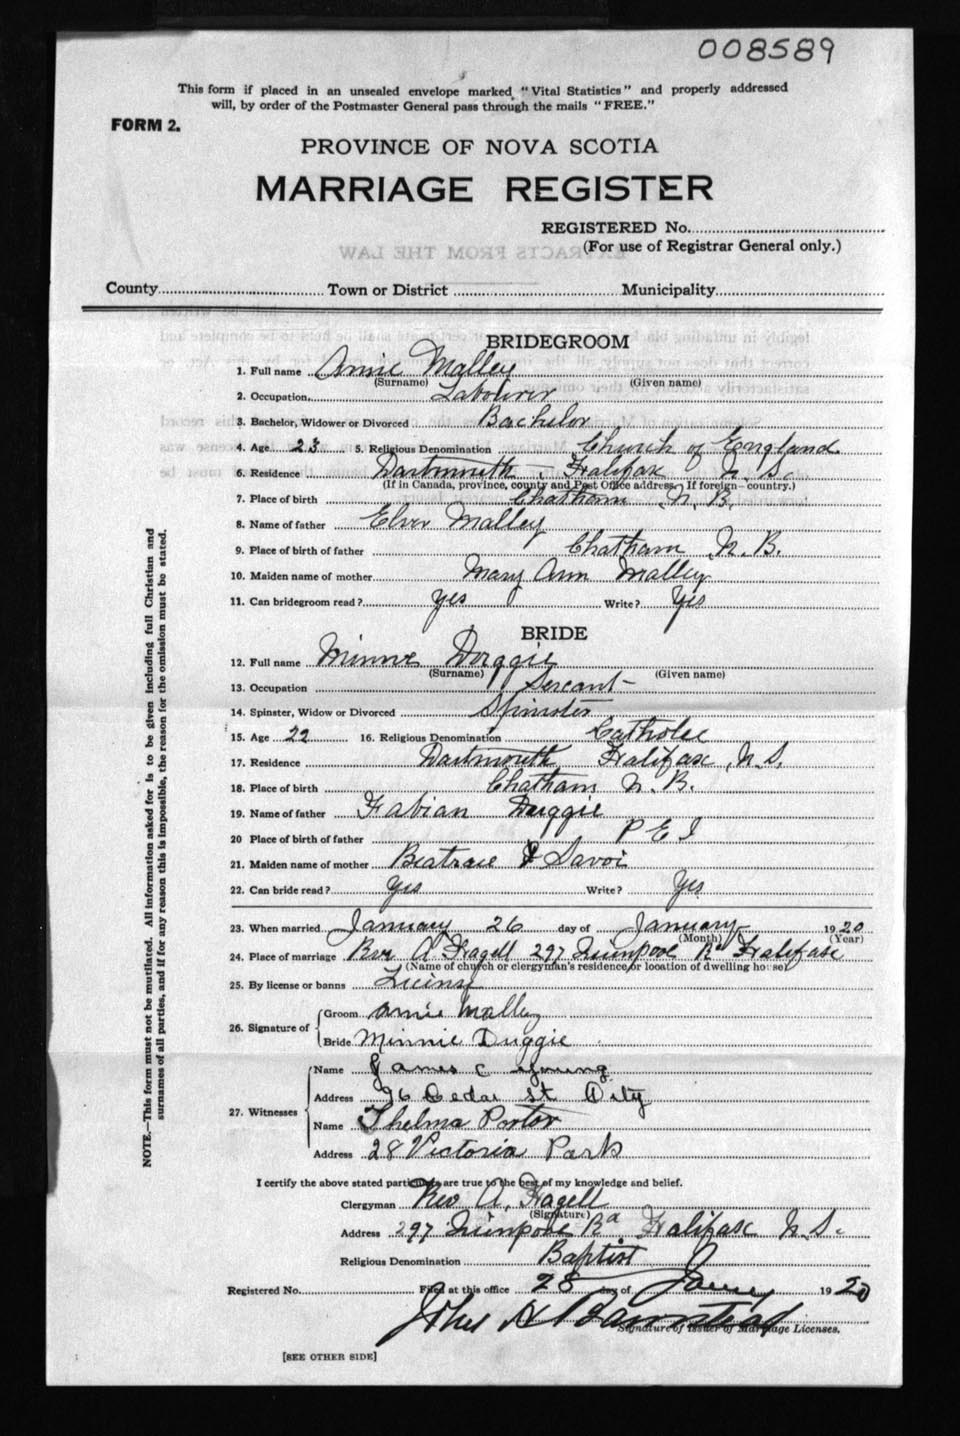 008589
This form if placed in an unsealed envelope marked "Vital Statistics" and properly addressed
will, by order of the Postmaster General pass through the mails "FREE."
FORM 2.
PROVINCE OF NOVA SCOTIA
MARRIAGE REGISTER
REGISTERED No.
(For use of Registrar General only.)
EXTRACTS FROM THE LAW
County Town or District Municipality
BRIDEGROOM
1. Full name Annie Malley
(Surname) (Given name)
2. Occupation. Labourer
3. Bachelor, Widower or Divorced Bachelor
4. Age 23 5. Religious Denomination Church of England
6. Residence Dartmouth, Halifax N.S.
(If in Canada, province, county and Post Office address. If foreign—country.)
7. Place of birth Chatham N.B.
8. Name of father Elver Malley
9. Place of birth of father Chatham N.B.
10. Maiden name of mother Mary Ann Malley
11. Can bridegroom read? yes Write? Yes
BRIDE
12. Full name Minnie Duggie
(Surname) (Given name)
13. Occupation Servant
14. Spinster, Widow or Divorced Spinster
15. Age 22 16. Religious Denomination Catholic
17. Residence Dartmouth Halifax, N.S.
18. Place of birth Chatham N.B.
19. Name of father Fabian Duggie
20 Place of birth of father P E I
21. Maiden name of mother Beatrace Savoi
22. Can bride read? yes Write? Yes
23. When married January 26 day of January 1920
(Month) (Year)
24. Place of marriage Rev A. 297 Quinpool Rd Halifax
(Name of church or clergyman's residence or location of dwelling house)
25. By license or banns
26. Signature of Groom Annie Malley
Bride Minnie Duggie
27. Witnesses Name James C Young
Address 96 Cedar St City
Name Thelma Porter
Address 28 Victoria Park
I certify the above stated particulars are true to the best of my knowledge and belief.
Clergyman Rev A.
(Signature)
Address 297 Quinpool Rd Halifax N.S.
Religious Denomination Baptist
Registered No. Filed at this office 28 day of Jany 1920
John H Barnstead
Signature of Issuer of Marriage Licenses.
[SEE OTHER SIDE]
NOTE.—This form must not be mutilated. All information asked for is to be given including full Christian and
surnames of all parties, and if for any reason this is impossible, the reason for the omission must be stated.